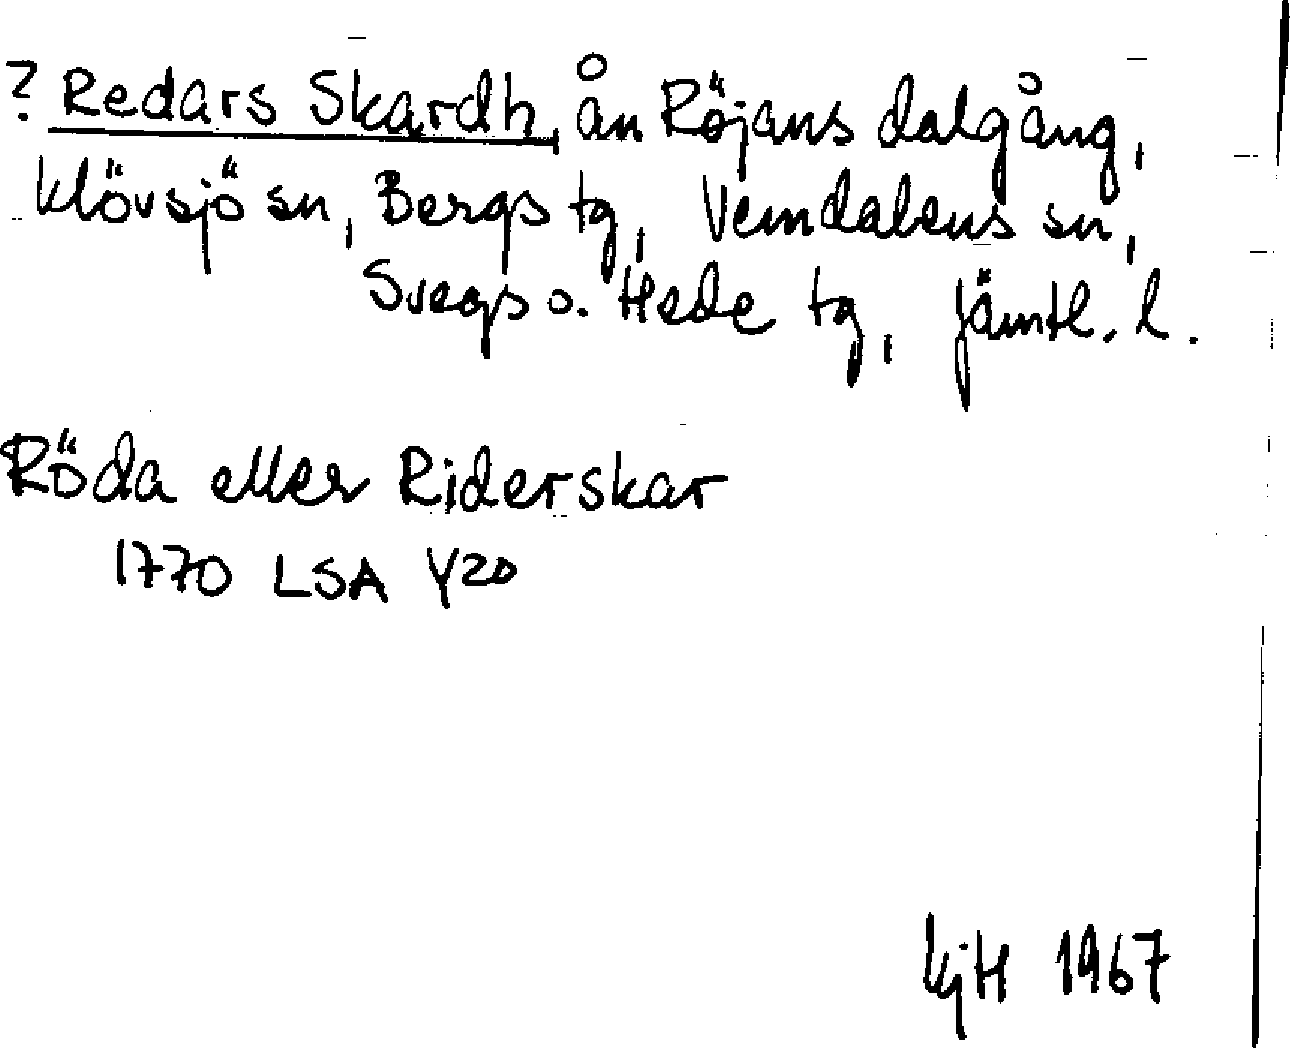 ? Redars Skardh, ån Röjans dalgång,
Klövsjö sn, Bergs tg, Vemdalens sn,
Svegs o. Hede tg, Jämtl. l.
Röda eller Riderskar
1770 LSA Y20
KjH 1967